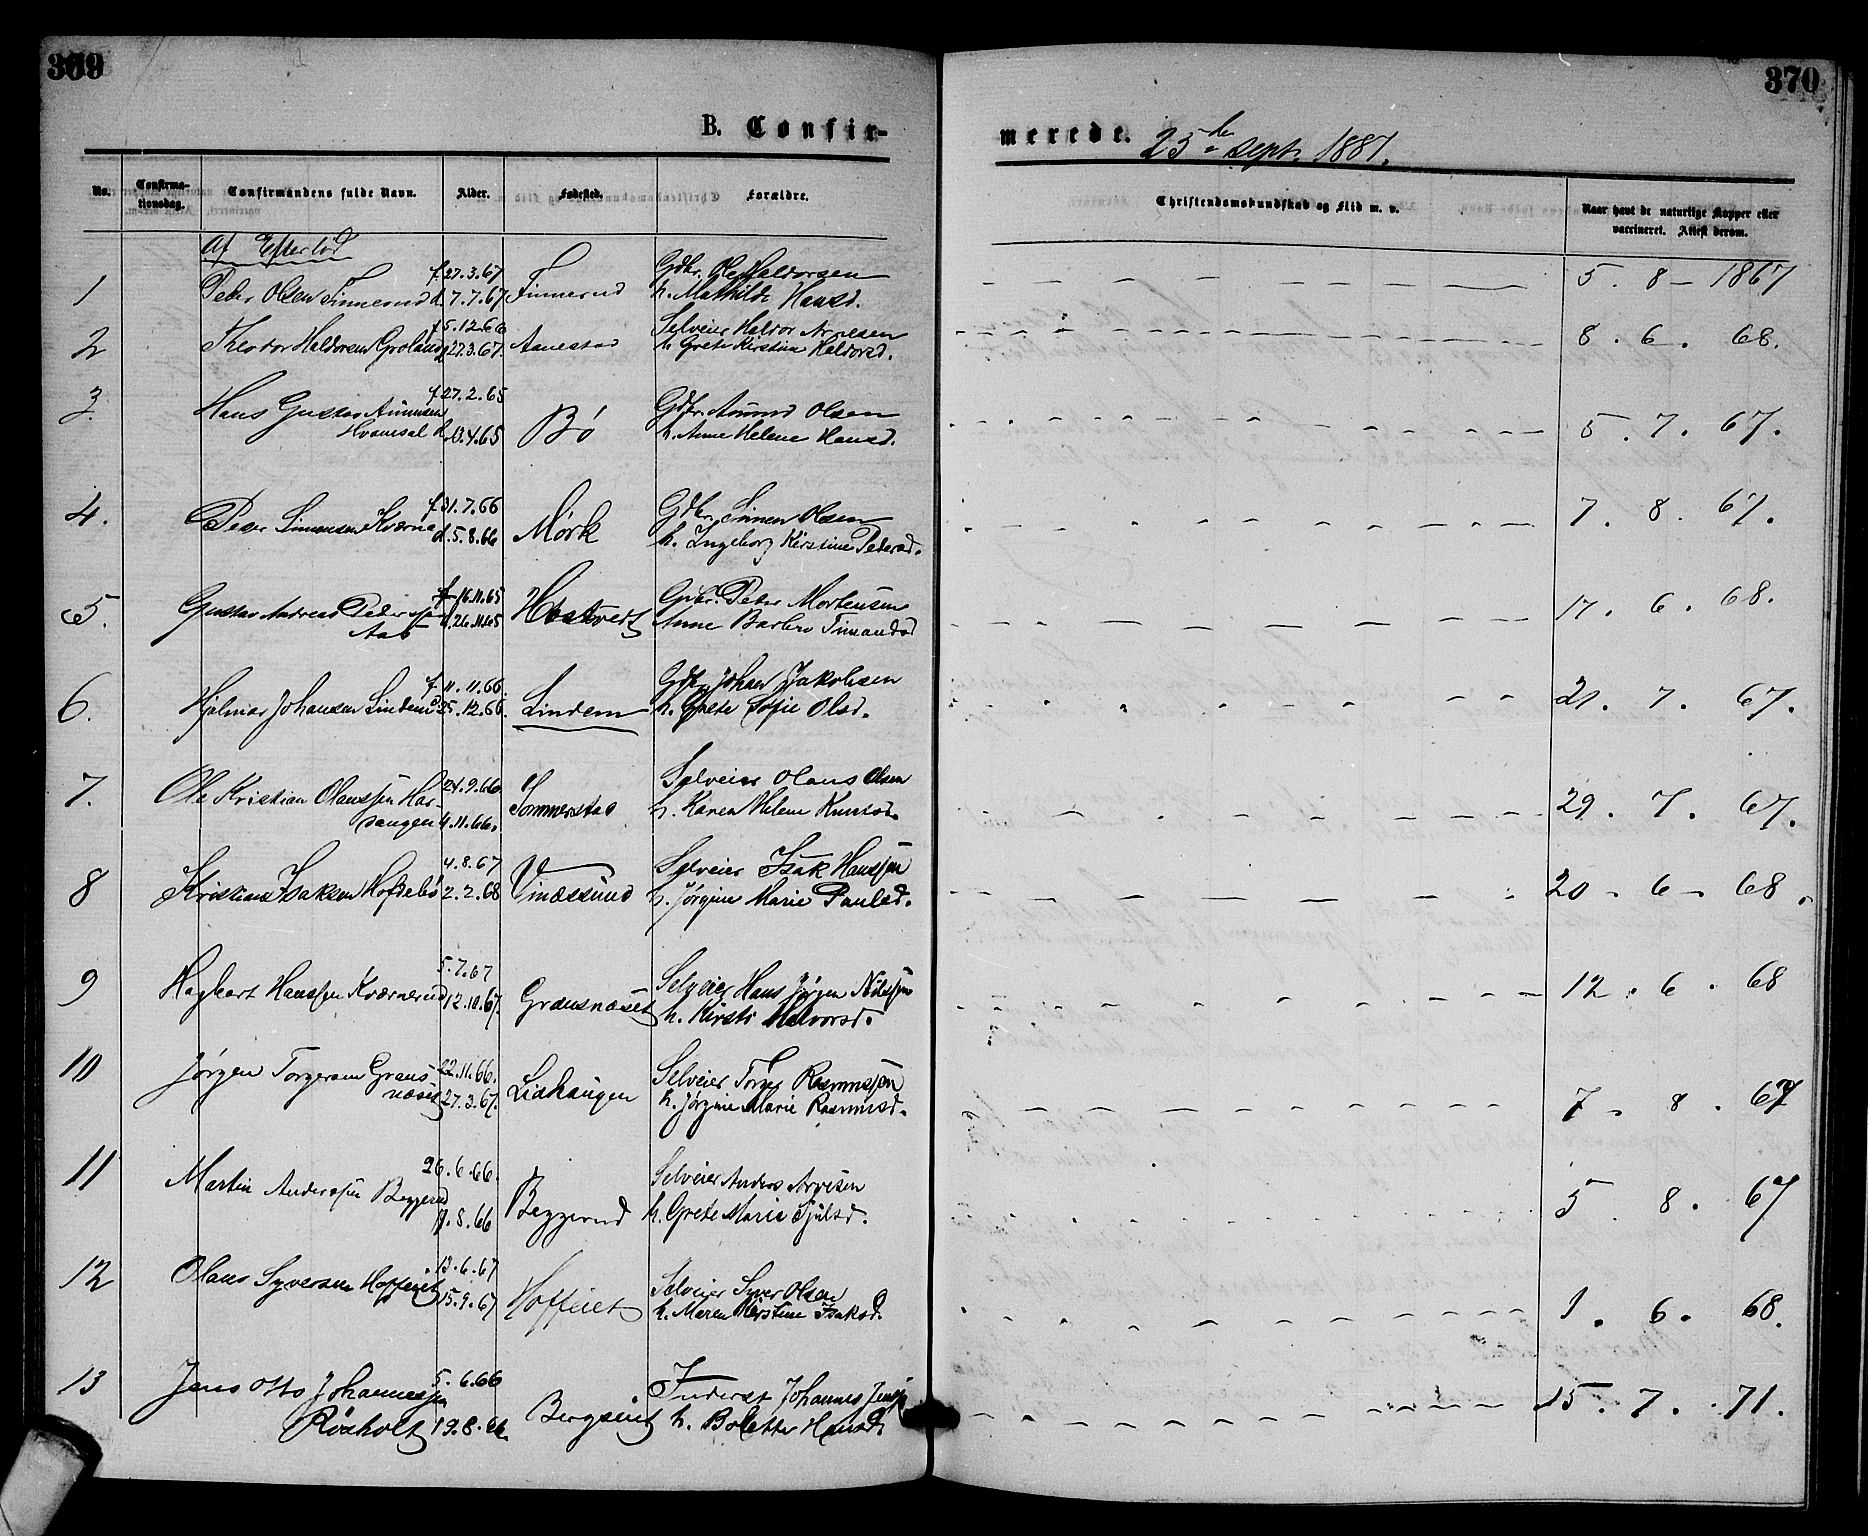 369
370
B. Confir-
merede. 25de sept. 1881.
No.
Confirma-
tionsdag.
Confirmandens fulde Navn.
Alder.
Fødested.
Forældre.
Christendomskundskab og Flid m. v.
Naar havt de naturlige Kopper eller
vaccineret. Attest derom.
Af Efterlød
f 27.3.67 Gdbr. Ole Haldorsen
1 Peder Olsen Finnerud d. 7.7.67 Finnerud h. Mathilde Hansd. 5. 8 - 1867
f 5.12.66 Selveier Haldor Arnesen
2 Theodor Haldorsen Groland d 27.3.67. Aanestad h. Grete Kirstine Haldorsd. 8. 6. 68.
f 27.2.65
3. Hans Gustav Amundsen Gdbr. Amund Olsen
Hvamsal d. 4.65 Bö h. Anne Helene Hansd. 5. 7. 67.
f 31.7.66 Gdbr. Simen Olsen
4. Peder Simensen Kværna d. 5.8.66 Mörk h. Ingeborg Kirstine Pedersd. 7. 8. 67.
f 16.11.65
5. Gustav Andreas Pedersen d. 26.11.65 Hostvedt Gdbr. Peder Mortensen
Aas Anne Barbro Timandsd 17. 6. 68.
f. 11.11.66. Gdbr. Johan Jakobsen
6. Hjalmar Johansen Lindem d 25.12.66. Lindem h. Grete Sofie Olsd. 21. 7. 67.
24.9.66 Selveier Olaus Olsen
7. Ole Kristian Olaussen Har- Sommerstad h. Karen Helene Knutsd.
sangen 4.11.66. 29. 7. 67.
4.8.67 Selveier Isak Hanssen
8 Kristian Isaksen Hofdelbö 2.2.68 Vinæssund h. Jörgine Marie Paulsd. 20 - 6 - 68.
5.7.67
9 Hagbart Hanssen Kværnerud 12.10.67. Grænsnæset Selveier Hans Jörgen Nilssen
h. Kirsti Halvorsd. 12. 6. 68
22.11.66. Selveier Torger Rasmussen
10 Jörgen Torgersen Græns-
næset 27.3.67. Liahaugen h. Jörgine Marie Rasmusd. 7. 8. 67
26.6.66. Selveier Anders Arvesen
11 Martin Anderssen Beggerud
9.8.66 Beggerud h. Grete Marie Fjulsd. 5. 8. 67
13.6.67
12 Olaus Syversen Hoffeiet 15.9.67 Hoffeiet Selveier Syver Olsen
h. Maren Kirstine Isaksd. 1. 6. 68.
5.6.66
13 Jens Otto Johannessen Inderst Johannes Jenssen
Röisholt 19.8.66 Bergseiet h. Bolette Hansd. 15. 7. 71.